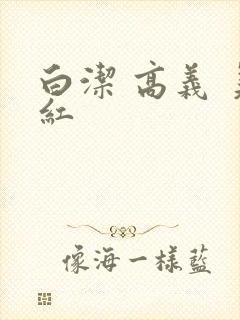 白潔 高義
紅
像海一樣藍